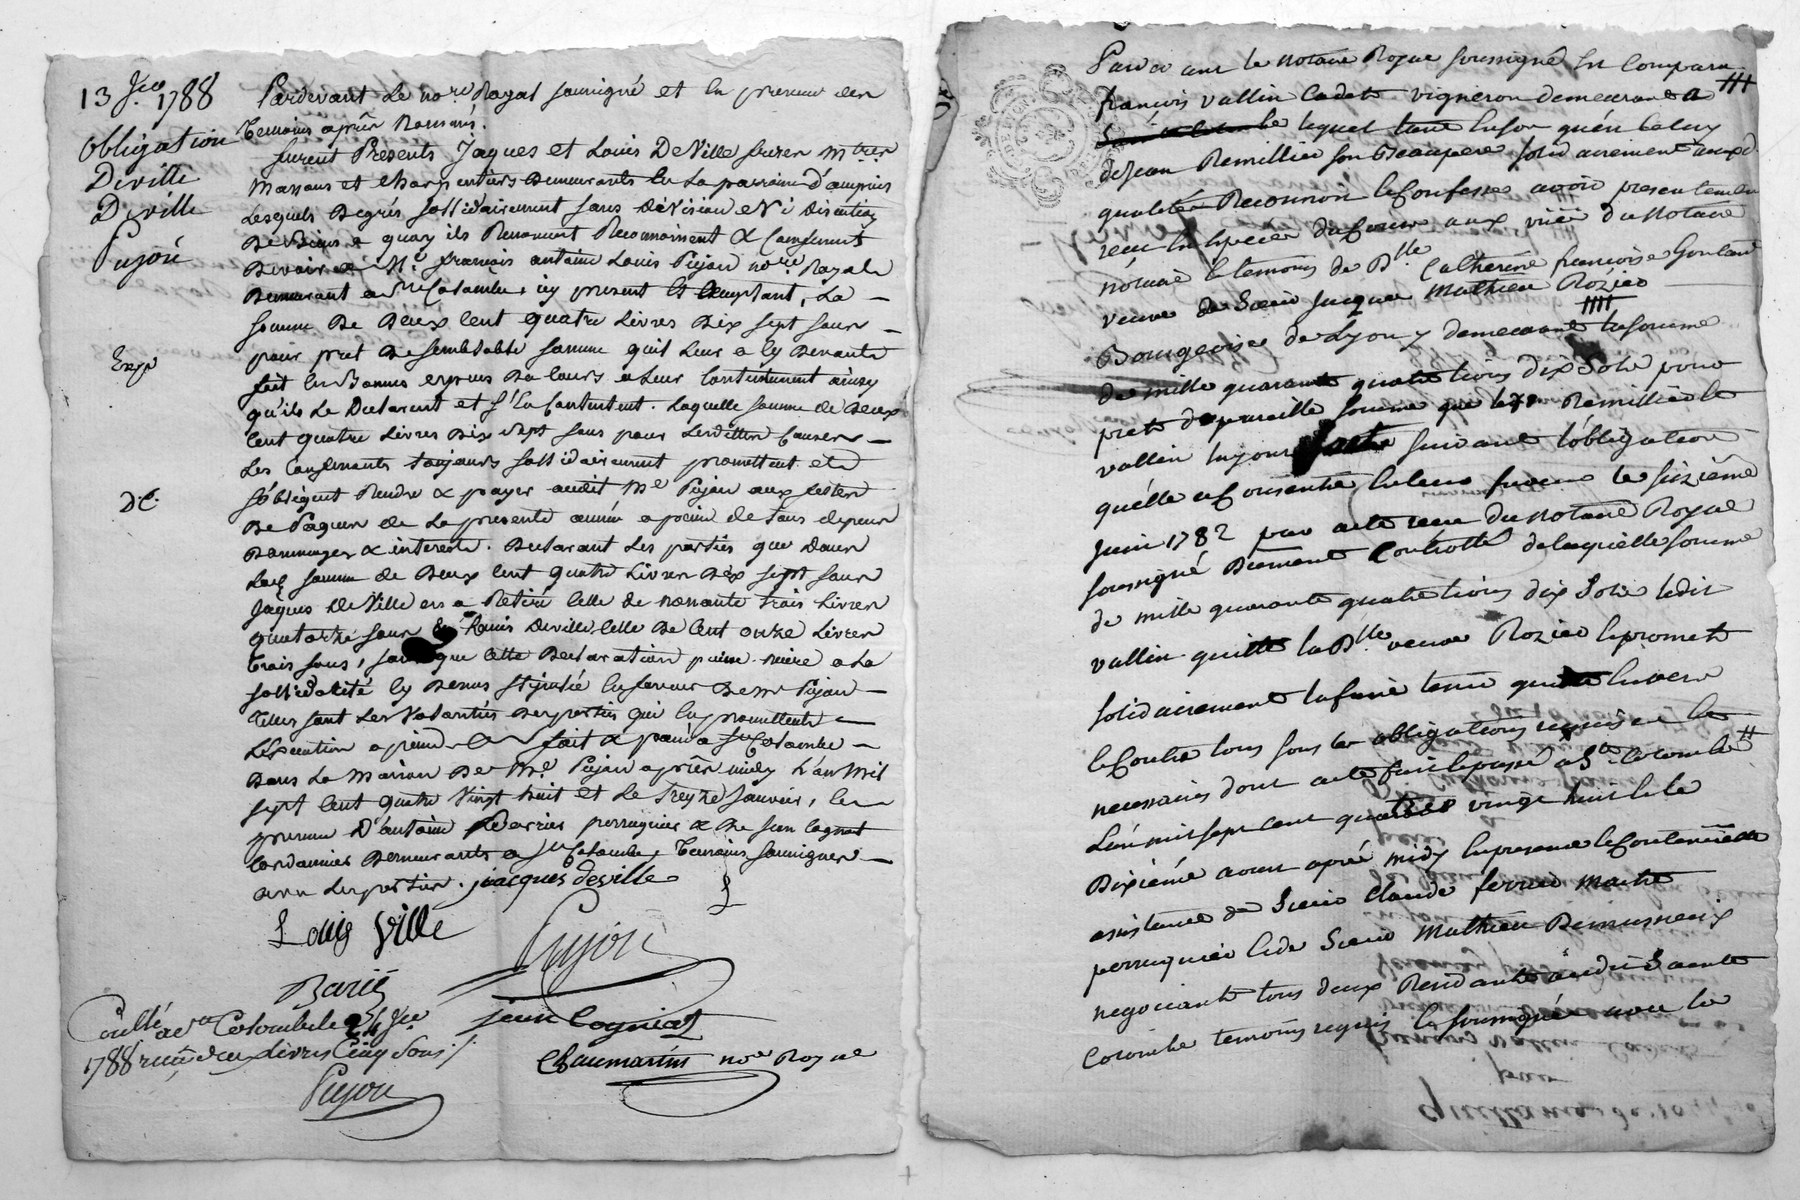 13 Jer 1788
Obligation
Deville
Deville
Pujon
Expé
DC.
Pardevant le nore Royal soussigné et en presence des
temoins après nommés.
furent Presents Jaques et Louis DeVille freres mtres
massons et charpentiers demeurants en la parroisse d'ampuis
Lesquels degrés sollidairement sans division ni discution
de Biens a quoy ils Renoncent Reconnoissent & Confessent
devoir a Me françois antoine Louis Pujon nore Royal
demeurant a Ste Colombe, icy present et acceptant, La
somme de deux Cent quatre Livres dix sept sous
pour pret de semblable somme qu'il leur a cy devant
fait en Bonnes especes de cours a leur Contentement ainsy
qu'ils Le declarent et s'en Contentent. Laquelle somme de deux
Cent quatre Livres dix sept sous pour lesdittes Causes
Les Confessants toujours sollidairement promettent et
s'obligent Rendre & payer audit Me Pujon aux fettes
de Paques de La presente année a peine de tous depens
dommages & interets. declarant Les parties que dans
Lad. somme de deux Cent quatre Livres dix sept sous
Jaques DeVille en a Retiré Celle de nonante trois Livres
quatorze sous & Louis Deville Celle de Cent onze Livres
trois sous, sans que Cette declaration puisse nuire a La
sollidalité cy dessus stipulée en faveur de Me Pujon
telles sont Les Volontés des parties qui en promettent
L'Execution a peine fait & passé a Ste Colombe
dans La Maison de Me Pujon après midy L'an Mil
sept Cent quatre Vingt huit et Le treize Janvier, en
presence d'antoine Barrier perruquier & de Jean Cogniat
Cordonnier demeurants a Ste Colombe, temoins soussignés
avec Les parties. jacques deville
Louis Ville
Pujon
Barié
jean Cogniat
Chaumartin nore Royal
Conllé a Ste Colombe le 24 Jer
1788 reçu deux Livres Cinq Sous
Pujon
Pardevant le notaire Royal soussigné est Comparu
françois vallin Cadet vigneron demeurant a
lequel tant en son qu'en Celuy
de Jean Remillier son Beaupere solidairement auxd.
qualités Reconnoit et Confesse avoir presentement
receu en especes du Cours aux vües du Notaire
notaire et temoins de Dlle Catherine françoise Goutard
veuve de Sieur Jacque Mathieu Rozier
Bourgeoise de Lyon y demeurant la somme
de mille quarante quatre livres dix Sols pour
prets de pareille somme que led. Remillier et
vallin suivant l'obligation
qu'elle a Consentie en leur faveur le sixième
Juin 1782 par acte receu du Notaire Royal
soussigné duement Controllé de laquelle somme
de mille quarante quatre livres dix Sols ledit
vallin quitte la Dlle veuve Rozier et promet
solidairement la faire tenir quitte envers
et Contre tous sous les obligations requises et
necessaires dont acte fait et passé a Ste Colombe
L'an mil sept cent quatre vingt huit et le
Dixième aout après midy en presence et Contenance
assistance de Sieur Claude ferrier maitre
perruquier et de Sieur Mathieu
negociant tous deux Residants audit Sainte
Colombe temoins requis et soussignés avec le